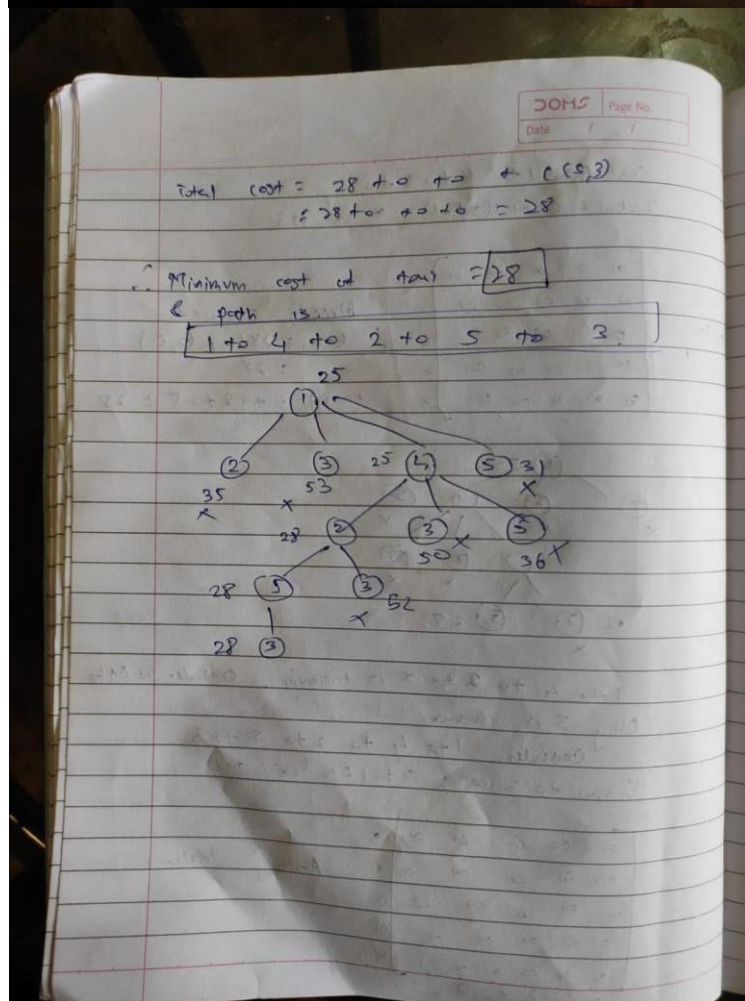 DOMS Page No.
Date / /
Total cost = 28 + 0 + 0 + C(5,3)
= 28 + 0 + 0 + 0 = 28
∴ Minimum cost of tour = 28
& path is
1 to 4 to 2 to 5 to 3.
25
1
2 3 25 4 5 31
35 53 x
x x
28 2 3 x 5
50 36 x
28 5 3 52
x
28 3